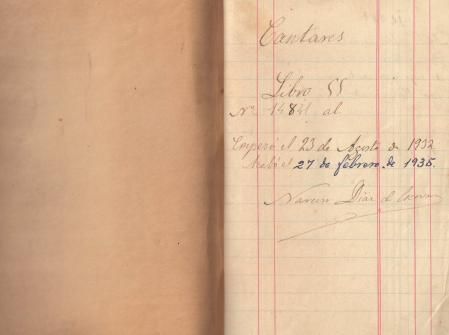 Cantares
Libro
Nº al
Empezó el 23 de Agosto de 1932
Acabó el 27 de febrero de 1935
Narciso Díaz de